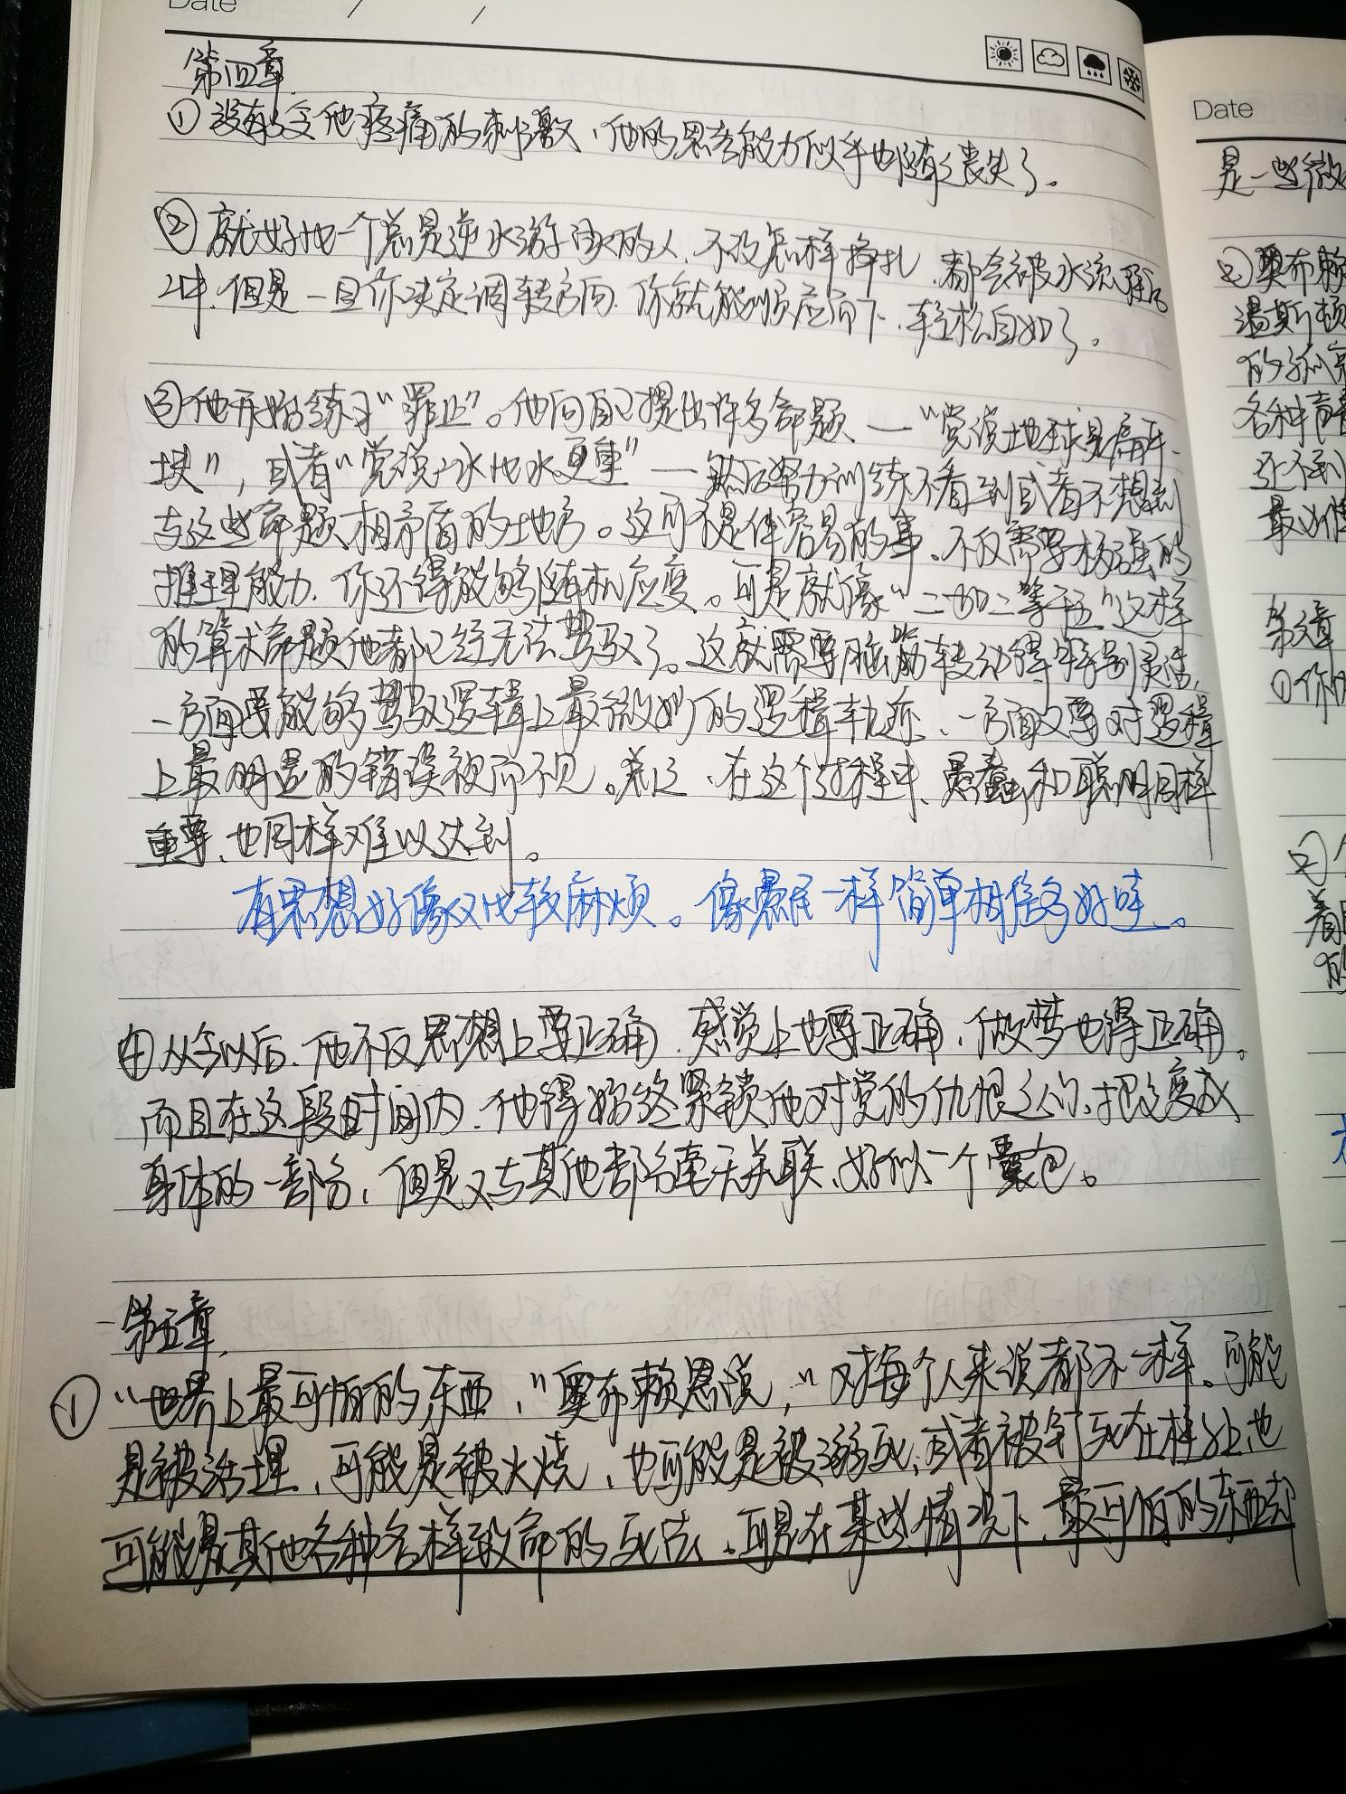 Date / /
第四章
①没有了受他疼痛的刺激，他的思考能力似乎也随之丧失了。
②就好他一个总是逆水游泳的人，不议怎样挣扎，都会被水流
冲，但是一旦你决定调转方向，你就能顺应而下，轻松自如了。
③他开始练习“罪止”。他向自己提出许多命题——“党说地球是扁平
块”，或者“党说冰比水更重”——然后努力训练不看到或者不想到
与这些命题相矛盾的地方。这可不是件容易的事，不仅需要极强的
推理能力，你还得能够随机应变。可是就像“二加二等于五”这样
的算术命题他都已经无法驾驭了。这就需要脑筋转动得特别灵活，
一方面要能够驾驭逻辑上最微妙的逻辑轨迹，一方面又要对逻辑
上最明显的错误视而不见。总之，在这个过程中，愚蠢和聪明同样
重要，也同样难以达到。
有思想好像又比较麻烦。像愚民一样简单相信多好哇。
④从今以后，他不仅思想上要正确，感觉上也要正确，做梦也得正确。
而且在这段时间内，他得始终紧锁他对党的仇恨之心，把之变成
身体的一部分，但是又与其他部分毫无关联，好似一个囊包。
第五章
①“世界上最可怕的东西，”奥布赖恩说，“对每个人来说都不一样。可能
是被活埋，可能是被火烧，也可能是被溺死，或者被钉死在桩上，也
可能是其他各种各样致命的死法。可是在某些情况下，最可怕的东西却
Date
是一些微
②奥布赖
温斯顿
的
各种声音
还不到
最
第六章
①你
②
着
的